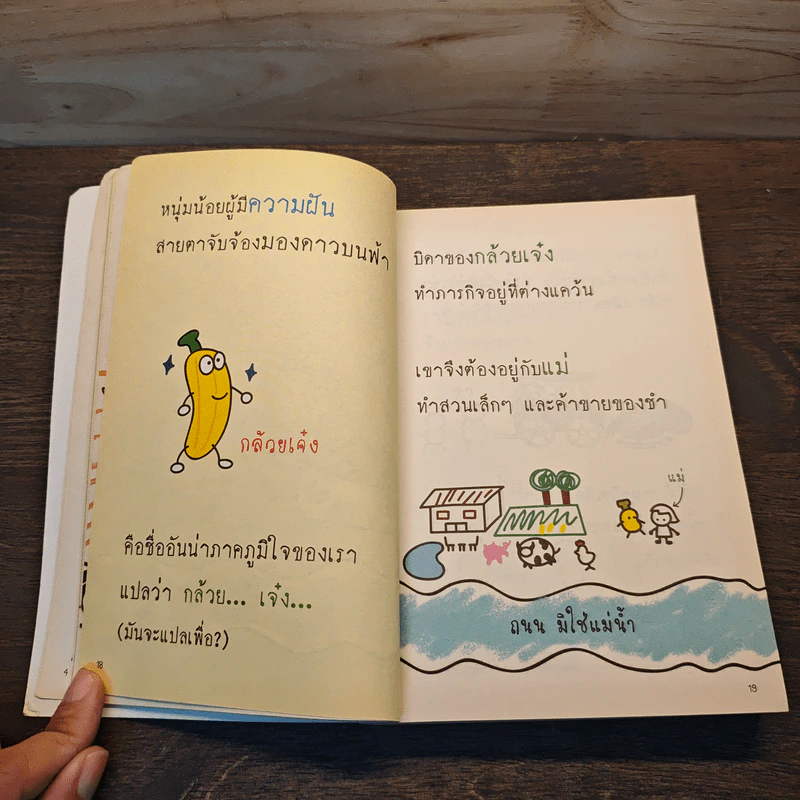 หนุ่มน้อยผู้มีความฝัน
สายตาจับจ้องมองดาวบนฟ้า
กล้วยเจ๋ง
คือชื่ออันน่าภาคภูมิใจของเรา
แปลว่า กล้วย... เจ๋ง...
(มันจะแปลเพื่อ?)
18
บิดาของกล้วยเจ๋ง
ทำภารกิจอยู่ที่ต่างแคว้น
เขาจึงต้องอยู่กับแม่
ทำสวนเล็กๆ และค้าขายของชำ
แม่
ถนน มิใช่แม่น้ำ
19